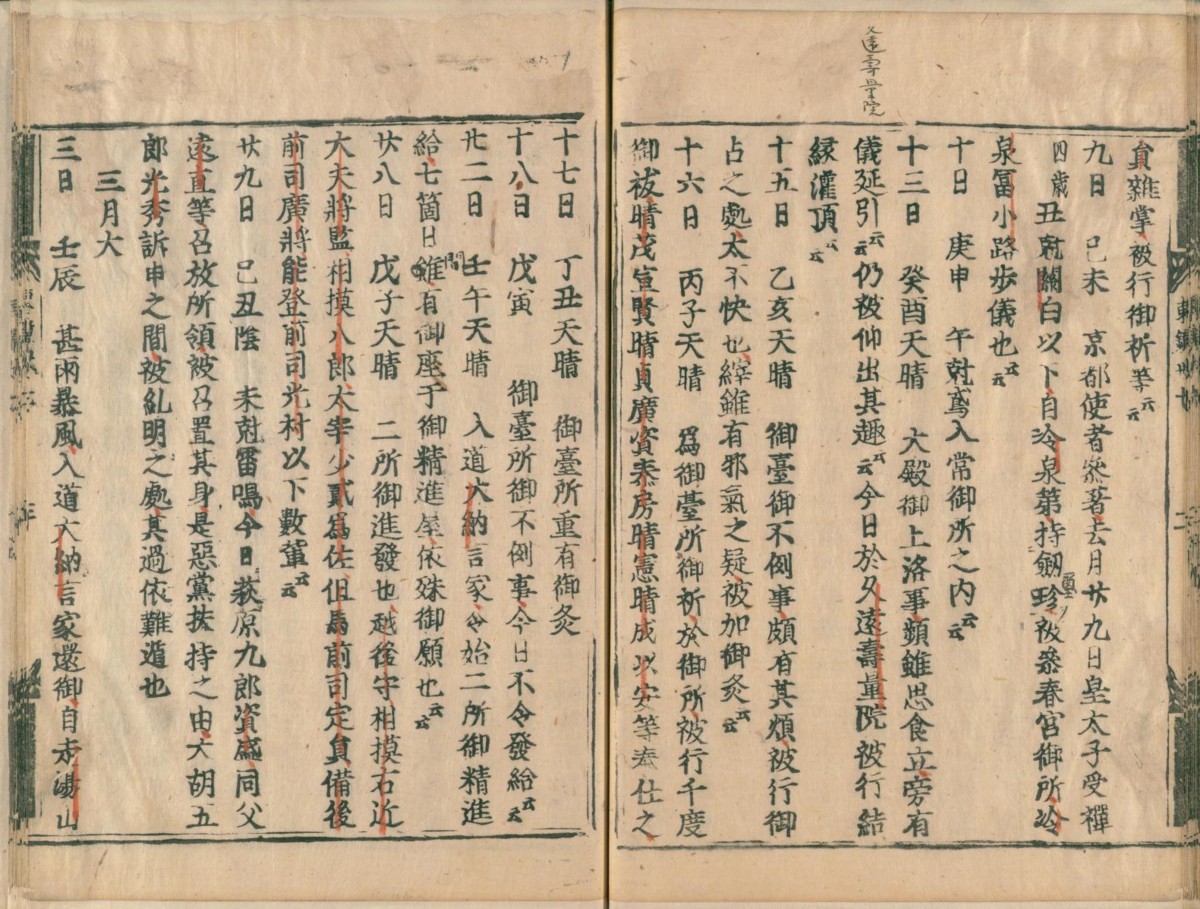 久遠壽量院
貟雜掌被行御祈等云云
九日　己未　京都使者叅著去月廿九日皇太子受禪
四歳　丑尅關白以下自冷泉第持劔璽被叅春宮御所冷
泉冨小路歩儀也云云
十日　庚申　午尅鳶入常御所之内云云
十三日　癸酉天晴　大殿御上洛事頻雖思食立旁有
儀延引云云仍被仰出其趣云云今日於久遠壽量院被行結
縁灌頂云云
十五日　乙亥天晴　御臺御不例事頗有其煩被行御
占之處太不快也縡雖有邪氣之疑被加御灸云云
十六日　丙子天晴　爲御臺所御祈於御所被行千度
御祓晴茂宣賢晴貞廣資泰房晴憲晴成以安等奉仕之
十七日　丁丑天晴　御臺所重有御灸
十八日　戊寅　御臺所御不例事今日不令發給云云
廿二日　壬午天晴　入道大納言家令始二所御精進
給七箇日間雖有御座于御精進屋依殊御願也云云
廿八日　戊子天晴　二所御進發也越後守相摸右近
大夫將監相摸八郎太宰少貳爲佐但馬前司定貟備後
前司廣將能登前司光村以下數輩云云
廿九日　己丑陰　未尅雷鳴今日萩原九郎資盛同父
遠直等召放所領被召置其身是惡黨扶持之由大胡五
郎光秀訴申之間被糺明之處其過依難遁也
三月大
三日　壬辰　甚雨暴風入道大納言家還御自走湯山